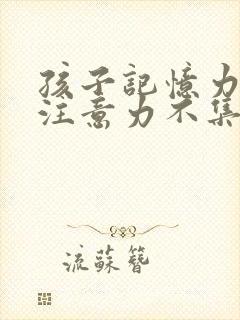 孩子記憶力
注意力不集
流蘇簪